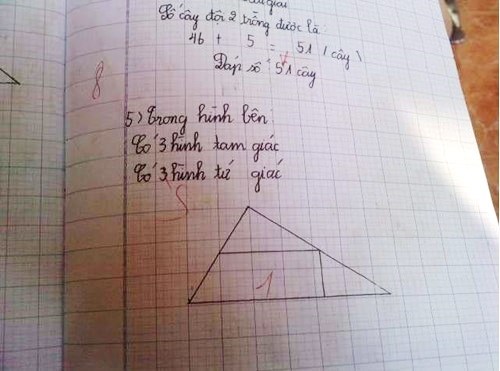 Số cây đội 2 trồng được là
46 + 5 = 51 (cây)
Đáp số 51 cây
8
5) Trong hình bên:
Có 3 hình tam giác
Có 3 hình tứ giác
1